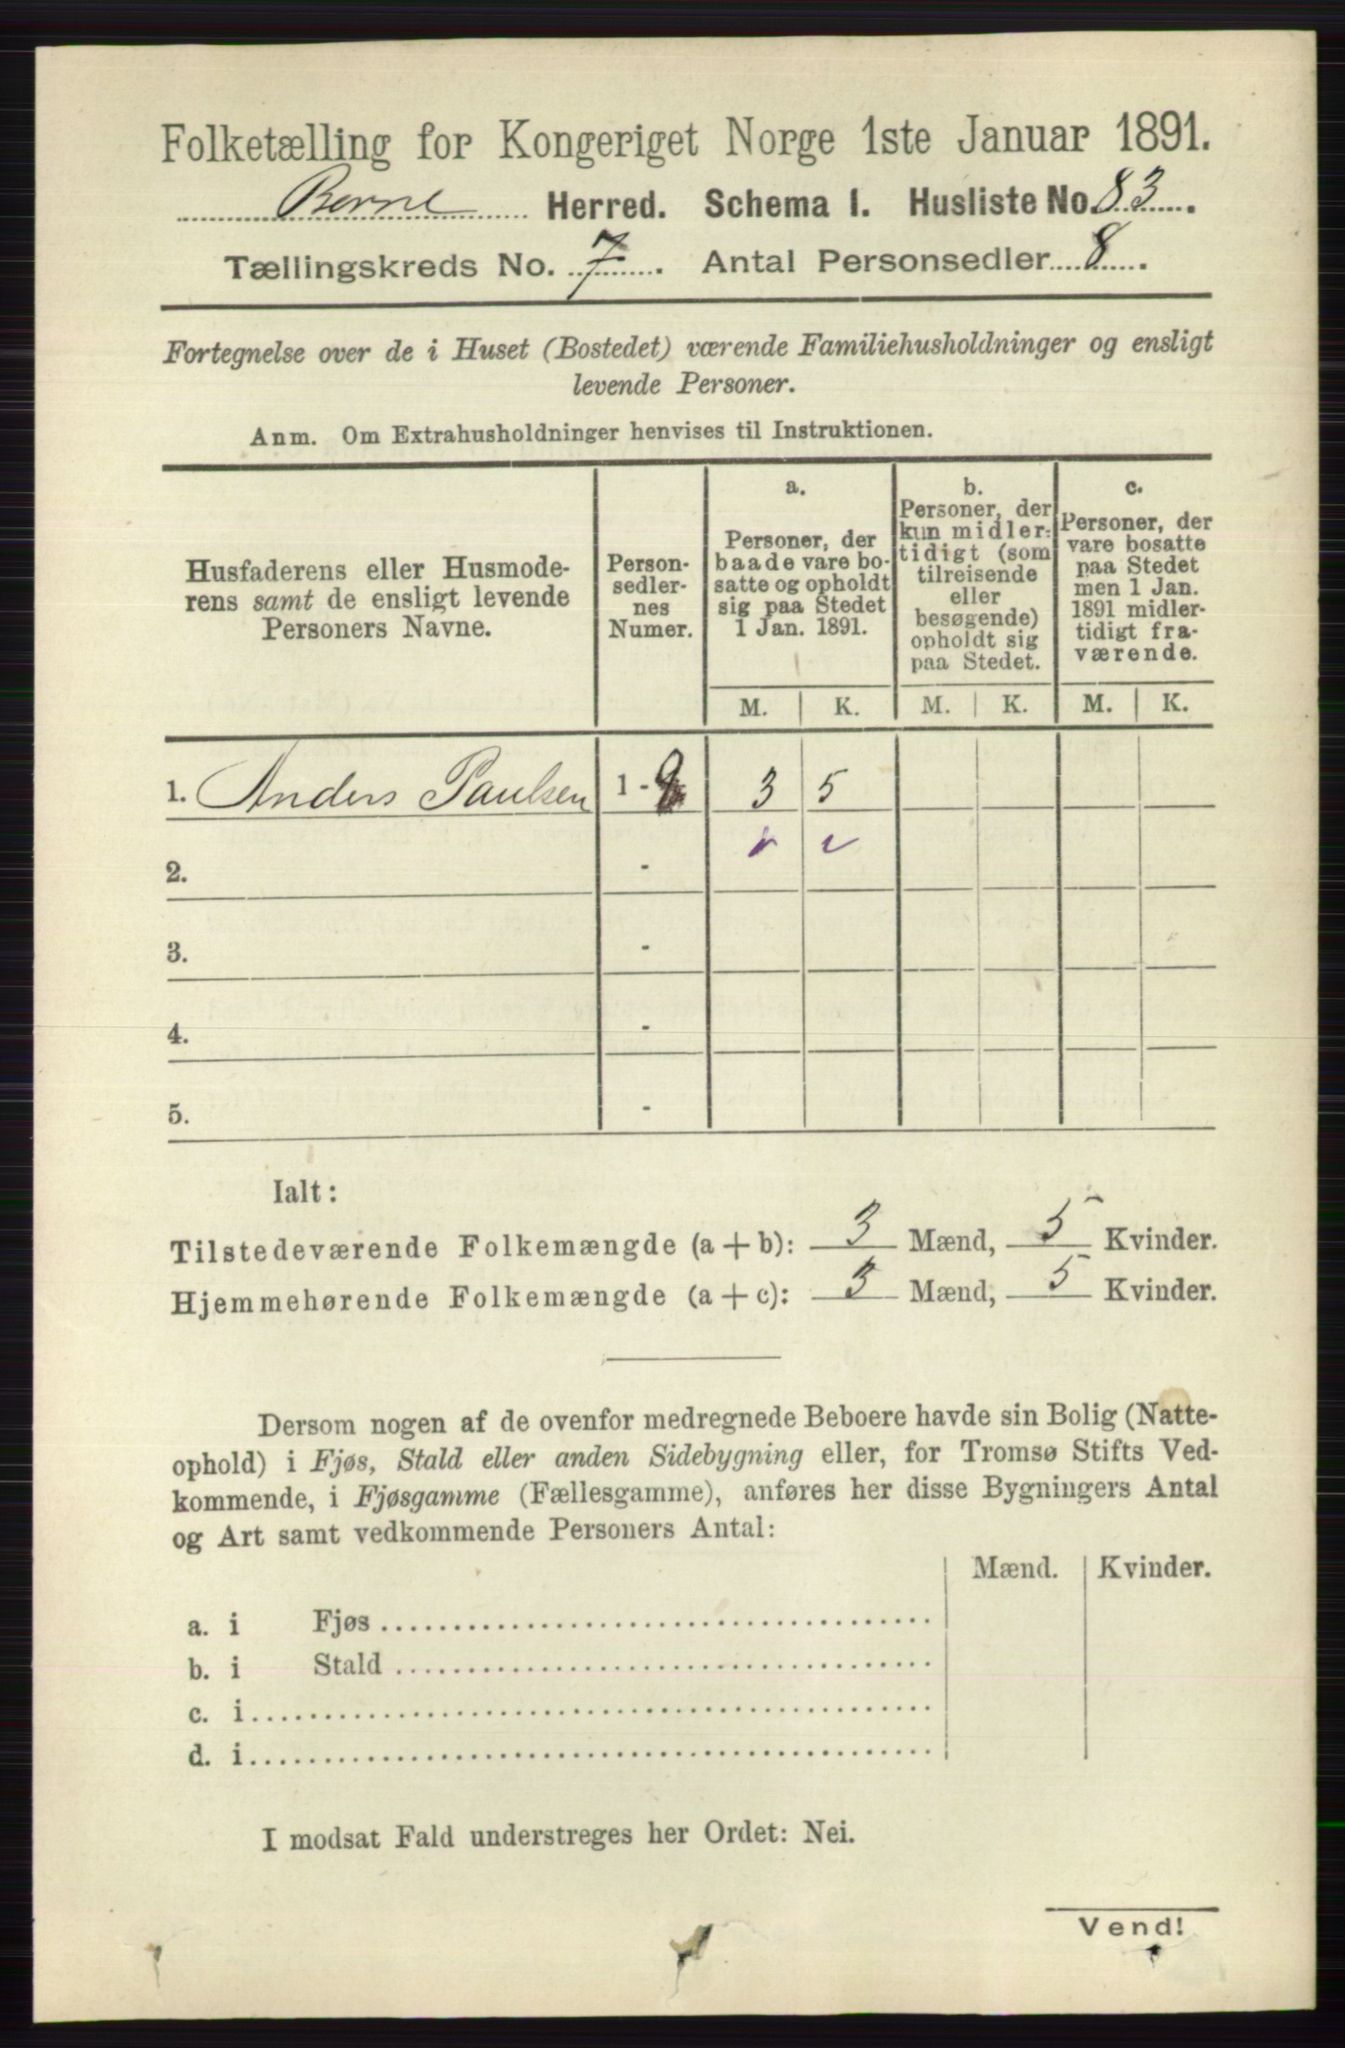 Folketælling for Kongeriget Norge 1ste Januar 1891.
Herred. Schema I. Husliste No. 83.
Tællingskreds No. 7. Antal Personsedler 8.
Fortegnelse over de i Huset (Bostedet) værende Familiehusholdninger og ensligt
levende Personer.
Anm. Om Extrahusholdninger henvises til Instruktionen.
Husfaderens eller Husmode-
rens samt de ensligt levende
Personers Navne.
Person-
sedler-
nes
Numer.
a.
Personer, der
baade vare bo-
satte og opholdt
sig paa Stedet
1 Jan. 1891.
b.
Personer, der
kun midler-
tidigt (som
tilreisende
eller
besøgende)
opholdt sig
paa Stedet.
c.
Personer, der
vare bosatte
paa Stedet
men 1 Jan.
1891 midler-
tidigt fra-
værende.
M. K. M. K. M. K.
1. Anders Paulsen 1 - 3 5
2. -
3. -
4. -
5. -
Ialt:
Tilstedeværende Folkemængde (a + b): 3 Mænd, 5 Kvinder.
Hjemmehørende Folkemængde (a + c): 3 Mænd, 5 Kvinder.
Dersom nogen af de ovenfor medregnede Beboere havde sin Bolig (Natte-
ophold) i Fjøs, Stald eller anden Sidebygning eller, for Tromsø Stifts Ved-
kommende, i Fjøsgamme (Fællesgamme), anføres her disse Bygningers Antal
og Art samt vedkommende Personers Antal:
Mænd. Kvinder.
a. i Fjøs
b. i Stald
c. i
d. i
I modsat Fald understreges her Ordet: Nei.
Vend!